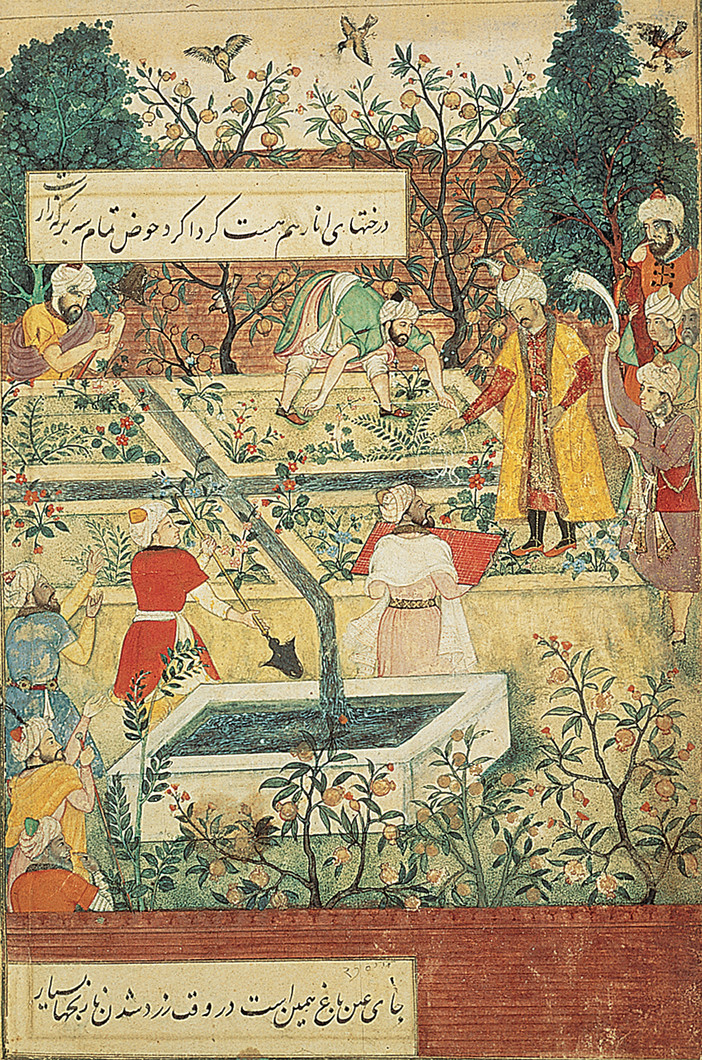 درختهای انار هم هست کردا کرد حوض تمام سه برکه زار است
جای عین باغ همین است در وقت زرد شدن نارنجها بسیار